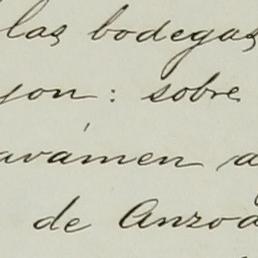 las bodegas
yon: sobre
avámen a
de Anzoa